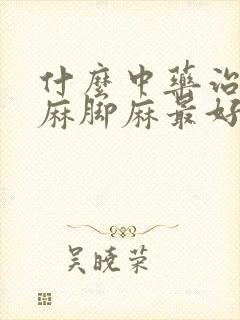 什麼中藥治
麻脚麻最好
吴曉荣